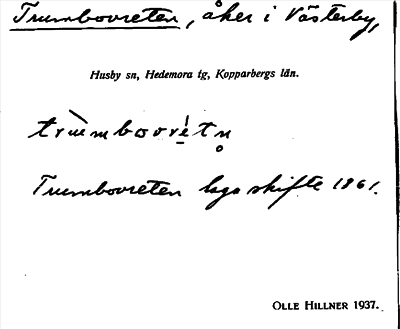 Trumbovreten, åker i Västerby,
Husby sn, Hedemora tg, Kopparbergs län.
Trumbovreten laga skifte 1861.
OLLE HILLNER 1937.